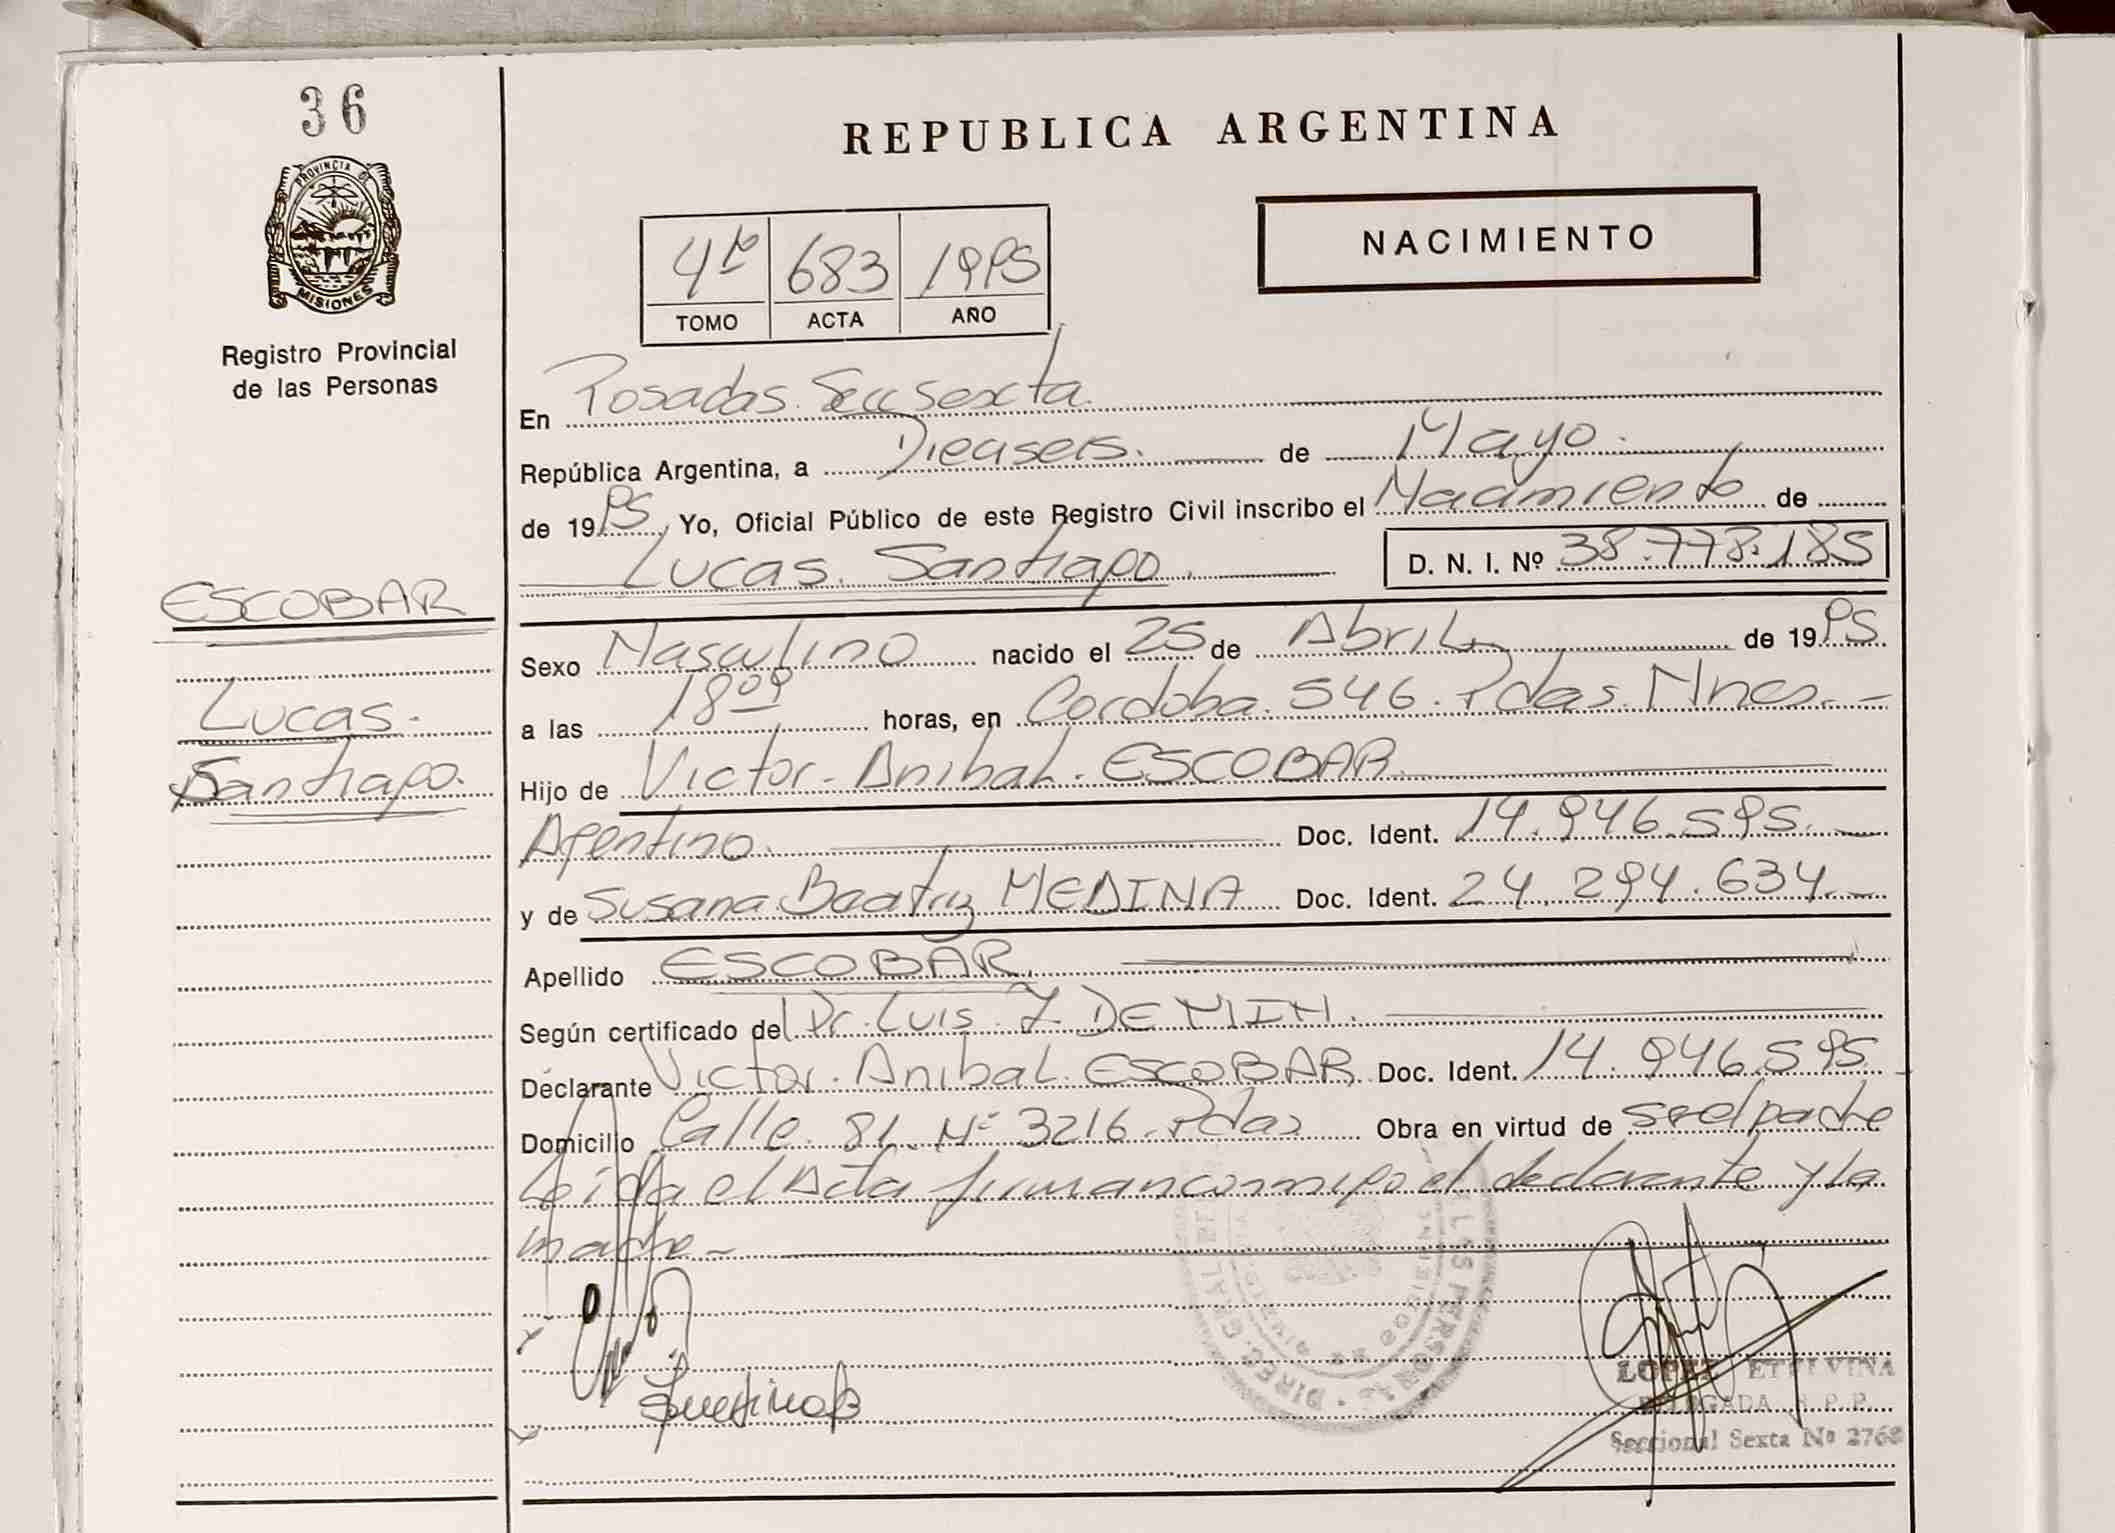 36
PROVINCIA DE
MISIONES
Registro Provincial
de las Personas
REPUBLICA ARGENTINA
NACIMIENTO
4to 683 1995
TOMO ACTA AÑO
En Posadas. Secc Sexta.
República Argentina, a Dieciseis. de Mayo.
de 1995, Yo, Oficial Público de este Registro Civil inscribo el Nacimiento de
Lucas. Santiago. D. N. I. Nº 38.778.185
ESCOBAR
Lucas.
Santiago.
Sexo Masculino nacido el 25 de Abril de 1995.
a las 18 09 horas, en Cordoba. 546. Pdas. Mnes. -
Hijo de Victor. Anibal. ESCOBAR.
Argentino. Doc. Ident. 14.946.595. -
y de Susana Beatriz MEDINA Doc. Ident. 24.294.634. -
Apellido ESCOBAR.
Según certificado del Dr. Luis. DEMIN.
Declarante Victor. Anibal. ESCOBAR. Doc. Ident. 14.946.595.
Domicilio Calle. 81. Nº 3216. Pdas Obra en virtud de ser el padre
Leida el Acta firman conmigo el declarante y la
madre -
DIREC. GRAL. LAS PERSONAS
LOPEZ ETELVINA
DELEGADA R. P. P.
Seccional Sexta Nº 2768